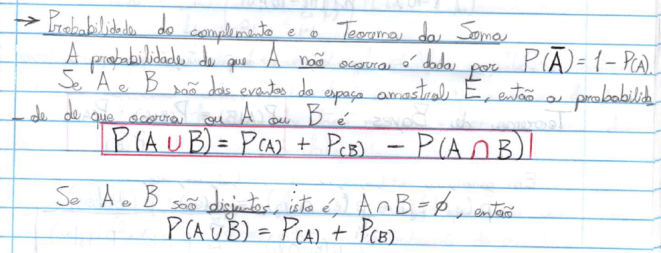 → Probabilidade do complemento e o Teorema da Soma
A probabilidade de que A não ocorra é dada por P(Ā) = 1 - P(A).
Se A e B são dos eventos do espaço amostral E, então a probabilid
- de de que ocorra ou A ou B é
P(A ∪ B) = P(A) + P(B) - P(A ∩ B)
Se A e B são disjuntos, isto é, A ∩ B = ∅, então
P(A ∪ B) = P(A) + P(B)